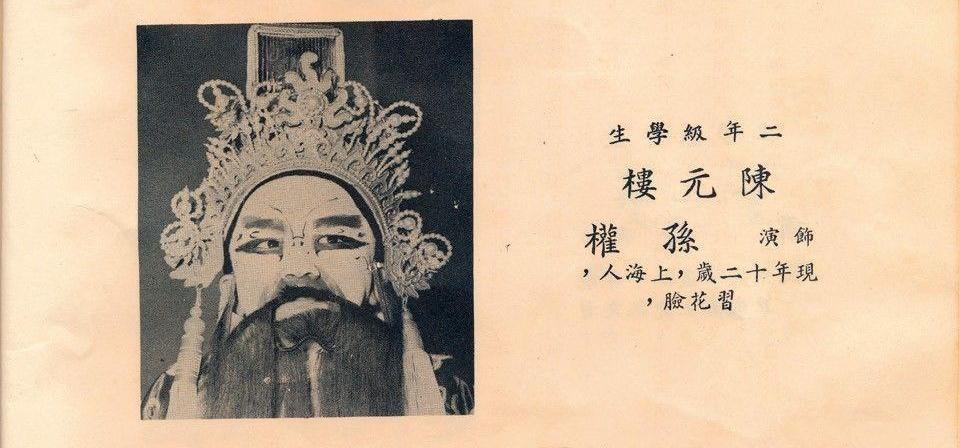 二年級學生
陳元樓
飾演 孫權
現年十二歲，上海人，
習花臉，